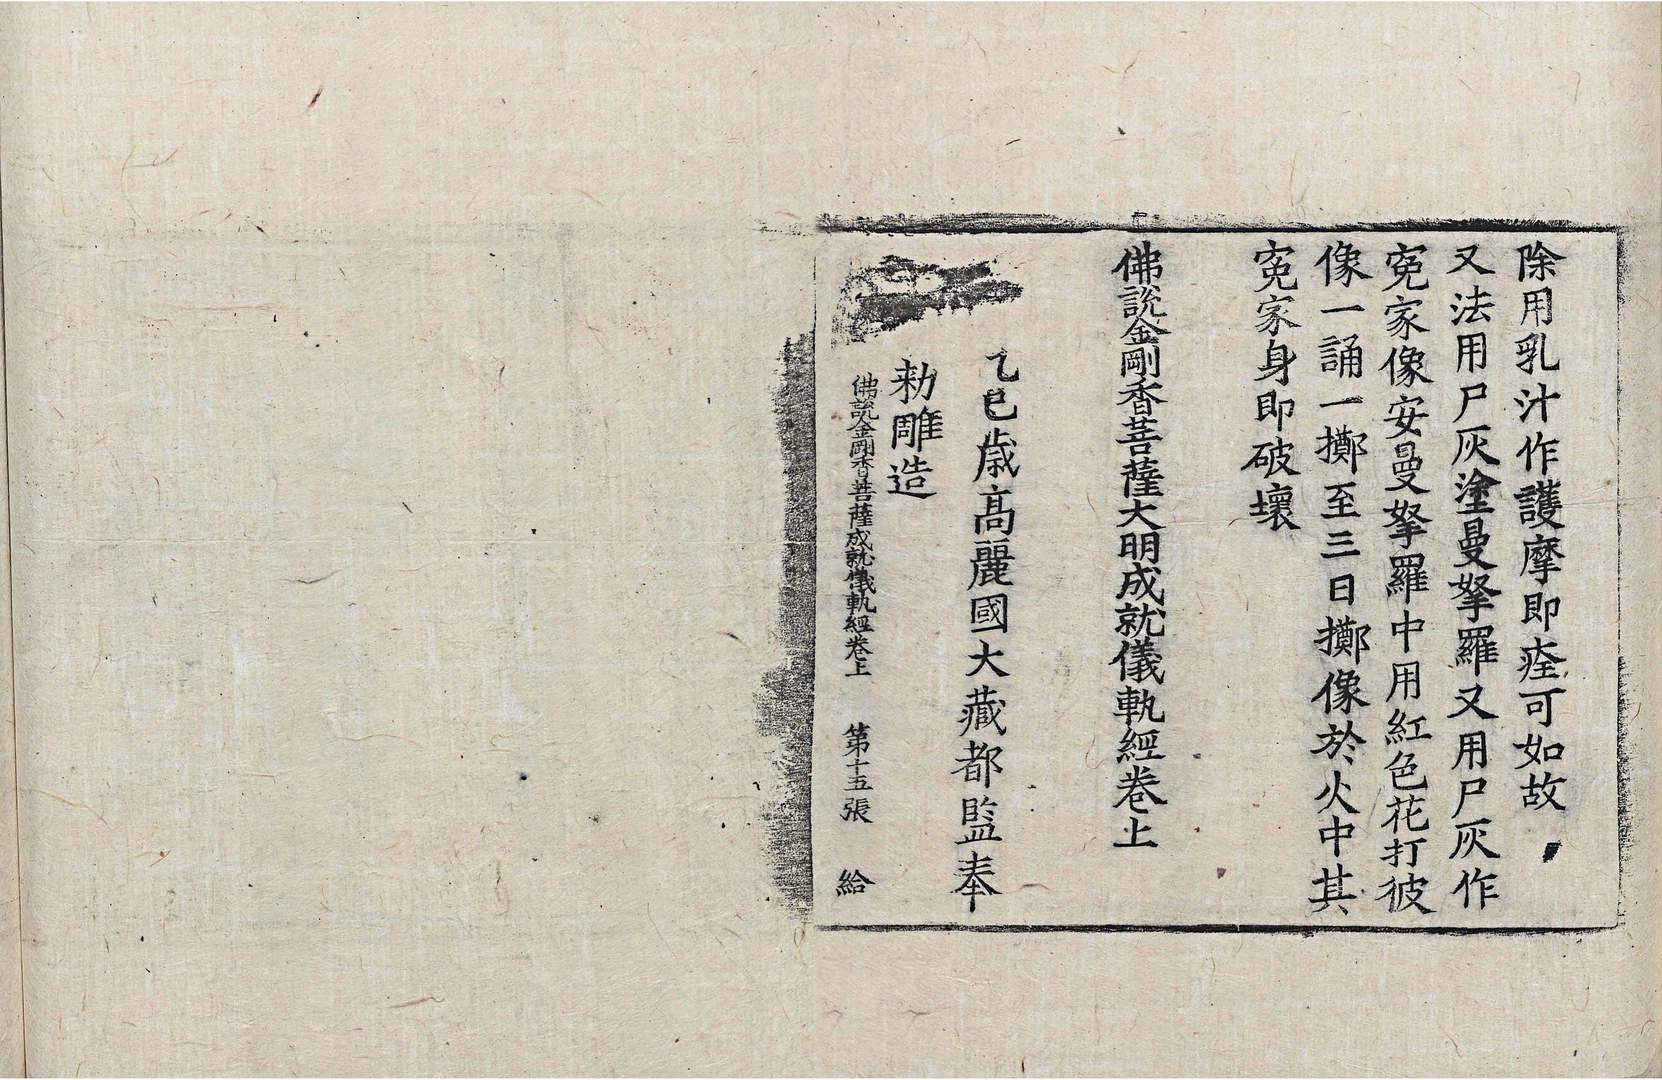 除用乳汁作護摩即痊可如故
又法用尸灰塗曼拏羅又用尸灰作
寃家像安曼拏羅中用紅色花打彼
像一誦一擲至三日擲像於火中其
寃家身即破壞
佛說金剛香菩薩大明成就儀軌經卷上
乙巳歳高麗國大藏都監奉
勑雕造
佛說金剛香菩薩成就儀軌經卷上 第十五張 給